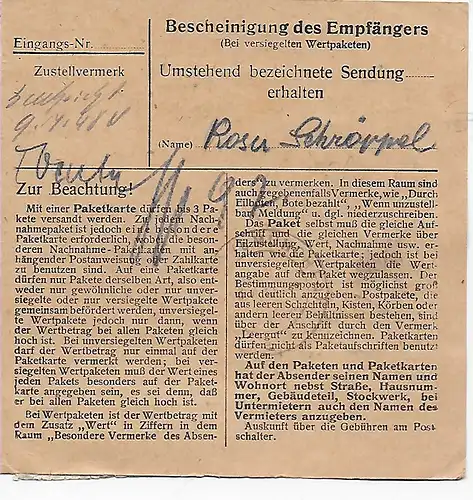 Eingangs-Nr.
Zustellvermerk
9. 4. 48
Bescheinigung des Empfängers
(Bei versiegelten Wertpaketen)
Umstehend bezeichnete Sendung
erhalten
(Name) Rosa Schröppel
97
Zur Beachtung!
Mit einer Paketkarte dürfen bis 3 Pa-
kete versandt werden. Zu jedem Nach-
nahmepaket ist jedoch eine besondere
Paketkarte erforderlich, wobei die beson-
deren Nachnahme-Paketkarten mit an-
hängender Postanweisung oder Zahlkarte
zu benutzen sind. Auf eine Paketkarte
dürfen nur Pakete derselben Art, also ent-
weder nur gewöhnliche oder nur unver-
siegelte oder nur versiegelte Wertpakete
gemeinsam befördert werden, unversiegel-
te Wertpakete jedoch nur dann, wenn
der Wertbetrag bei allen Paketen gleich
hoch ist. Bei unversiegelten Wertpaketen
darf der Wertbetrag nur einmal auf der
Paketkarte vermerkt werden; bei ver-
siegelten Wertpaketen muß der Wert eines
jeden Pakets besonders auf der Paket-
karte angegeben sein, es sei denn, daß
er bei allen Paketen gleich hoch ist.
Bei Wertpaketen ist der Wertbetrag mit
dem Zusatz „Wert" in Ziffern in dem
Raum „Besondere Vermerke des Absen-
ders" zu vermerken. In diesem Raum sind
auch gegebenenfalls Vermerke, wie „Durch
Eilboten, Bote bezahlt", „Wenn unzustell-
bar, Meldung" u. dgl. niederzuschreiben.
Das Paket selbst muß die gleiche Auf-
schrift und die gleichen Vermerke über
Eilzustellung, Wert, Nachnahme usw. er-
halten wie die Paketkarte; jedoch ist bei
unversiegelten Wertpaketen die Wert-
angabe auf dem Paket wegzulassen. Der
Bestimmungspostort ist möglichst groß
und deutlich anzugeben. Postpakete, die
aus leeren Schachteln, Kisten, Körben oder
anderen leeren Behältnissen bestehen, sind
über der Anschrift durch den Vermerk
„Leergut" zu kennzeichnen. Paketkarten
dürfen nicht als Paketaufschriften benutzt
werden.
Auf den Paketen und Paketkarten
hat der Absender seinen Namen und
Wohnort nebst Straße, Hausnum-
mer, Gebäudeteil, Stockwerk, bei
Untermietern auch den Namen des
Vermieters anzugeben.
Auskunft über die Gebühren am Post-
schalter.